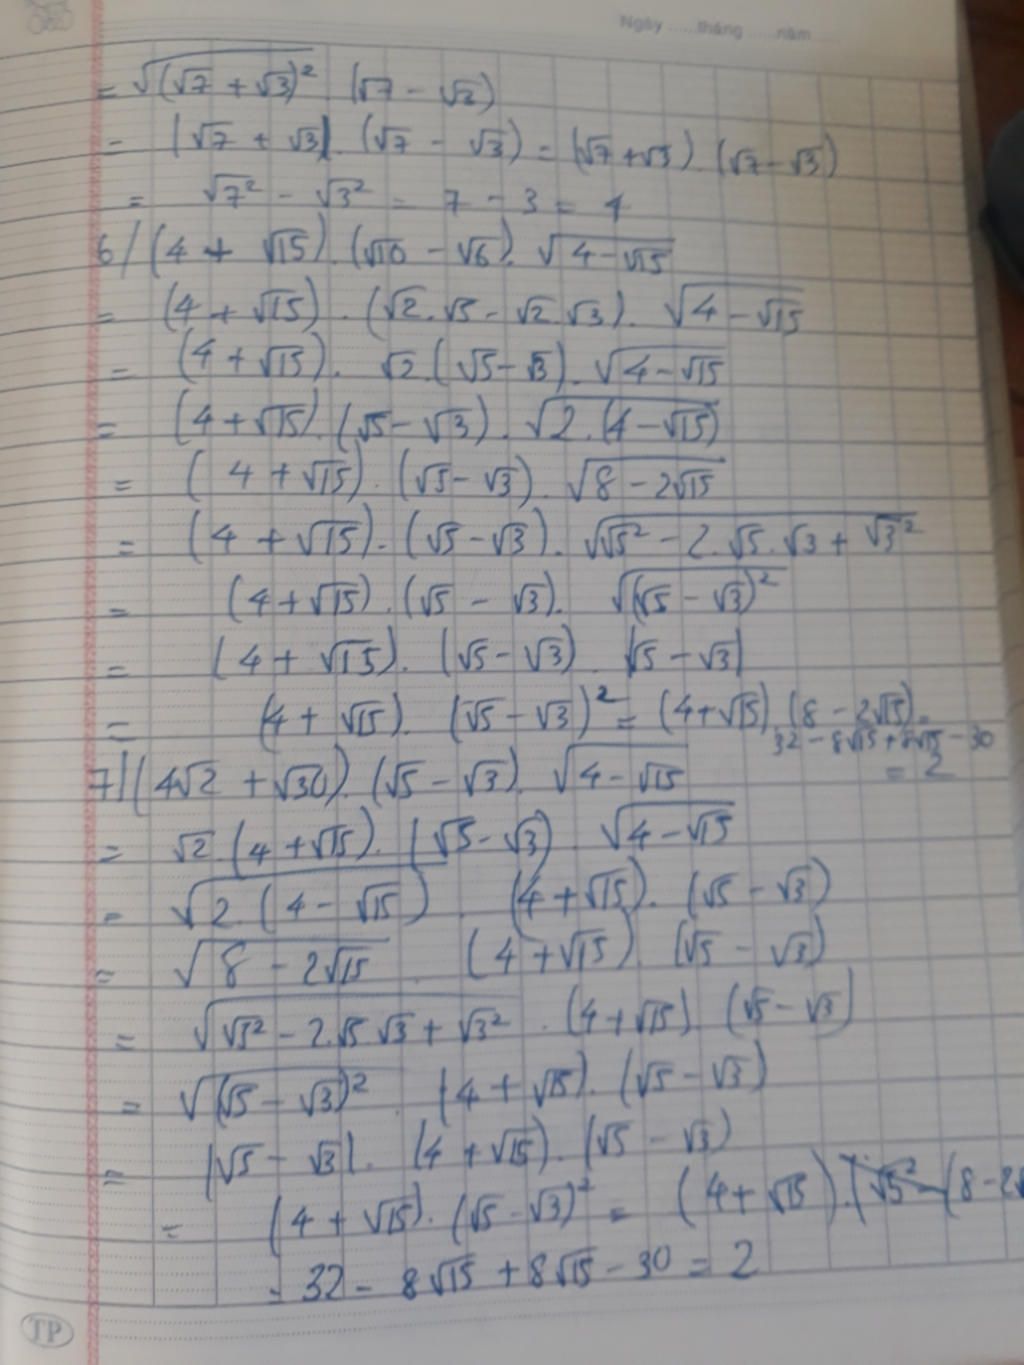 Ngày ......tháng ......năm ......
= √(√7 + √3)² (√7 - √2)
= |√7 + √3|. (√7 - √3) = (√7 + √3) (√7 - √3)
= √7² - √3² = 7 - 3 = 4
6/ (4 + √15). (√10 - √6). √4-√15
= (4 + √15) . (√2.√5 - √2.√3). √4 - √15
= (4 + √15). √2.(√5 - √3). √4-√15
= (4 + √15).(√5 - √3). √2.(4 - √15)
= (4 + √15). (√5 - √3). √8 - 2√15
= (4 + √15). (√5 - √3). √√5² - 2.√5.√3 + √3²
= (4 + √15) . (√5 - √3). √(√5 - √3)²
= (4 + √15). (√5 - √3) . |√5 - √3|
= (4 + √15). (√5 - √3)² = (4+√15).(8 - 2√15) =
32 - 8√15 + 8√15 - 30
= 2
7/ (4√2 + √30). (√5 - √3). √4 - √15
= √2.(4 + √15). (√5 - √3) . √4 - √15
= √2.(4 - √15) . (4 + √15). (√5 - √3)
= √8 - 2√15 . (4 + √15) (√5 - √3)
= √√5² - 2.√5 √3 + √3² . (4 + √15) (√5 - √3)
= √(√5 - √3)² . (4 + √15). (√5 - √3)
= |√5 - √3|. (4 + √15). (√5 - √3)
= (4 + √15). (√5 - √3)² = (4 + √15).(8 - 2√
= 32 - 8√15 + 8√15 - 30 = 2
TP